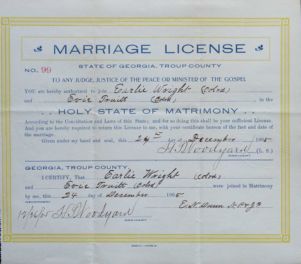 MARRIAGE LICENSE
STATE OF GEORGIA, TROUP COUNTY
NO. 99
TO ANY JUDGE, JUSTICE OF THE PEACE OR MINISTER OF THE GOSPEL
YOU are hereby authorized to join Earlie Wright (Cold)
and Evie Truitt (Cold) in the
HOLY STATE OF MATRIMONY
According to the Constitution and Laws of this State; and for so doing this shall be your sufficient License.
And you are hereby required to return this License to me, with your certificate hereon of the fact and date
of the marriage.
Given under my hand and seal, this 24th day of December 190
H. T. Woodyard (L. S.)
ORDINARY
GEORGIA, TROUP COUNTY.
I CERTIFY That Earlie Wright (Cold)
and Evie Truitt (Cold) were joined in Matrimony
by me, this 24 day of December 190
H. T. Woodyard
ORDINARY